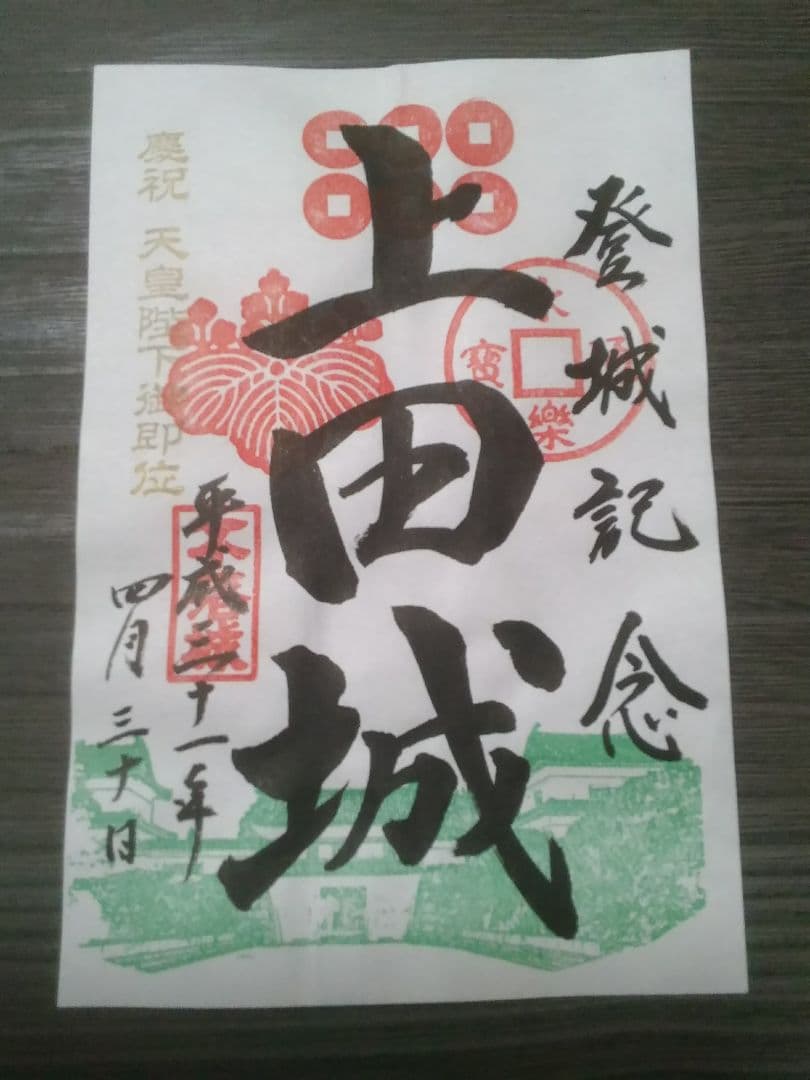 登城記念
上田城
永樂通寳
慶祝 天皇陛下御即位
平成三十一年
四月三十日